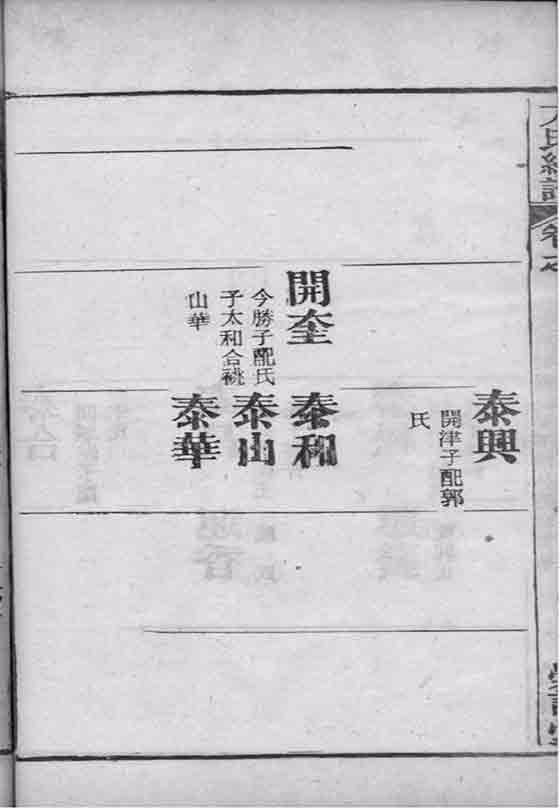 泰興
開津子配郭
氏
開奎
今勝子配氏
子太和合祧
山華
泰和
泰山
泰華